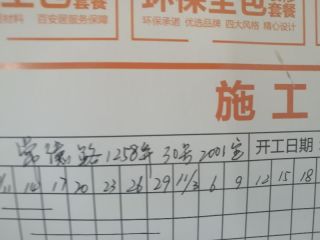 全包 套餐
材料 百安居服务保障
环保全包 套餐
环保承诺 优选品牌 四大风格 精心设计
施工
常德路1258弄30号2001室 开工日期:
11 14 17 20 23 26 29 11/3 6 9 12 15 18